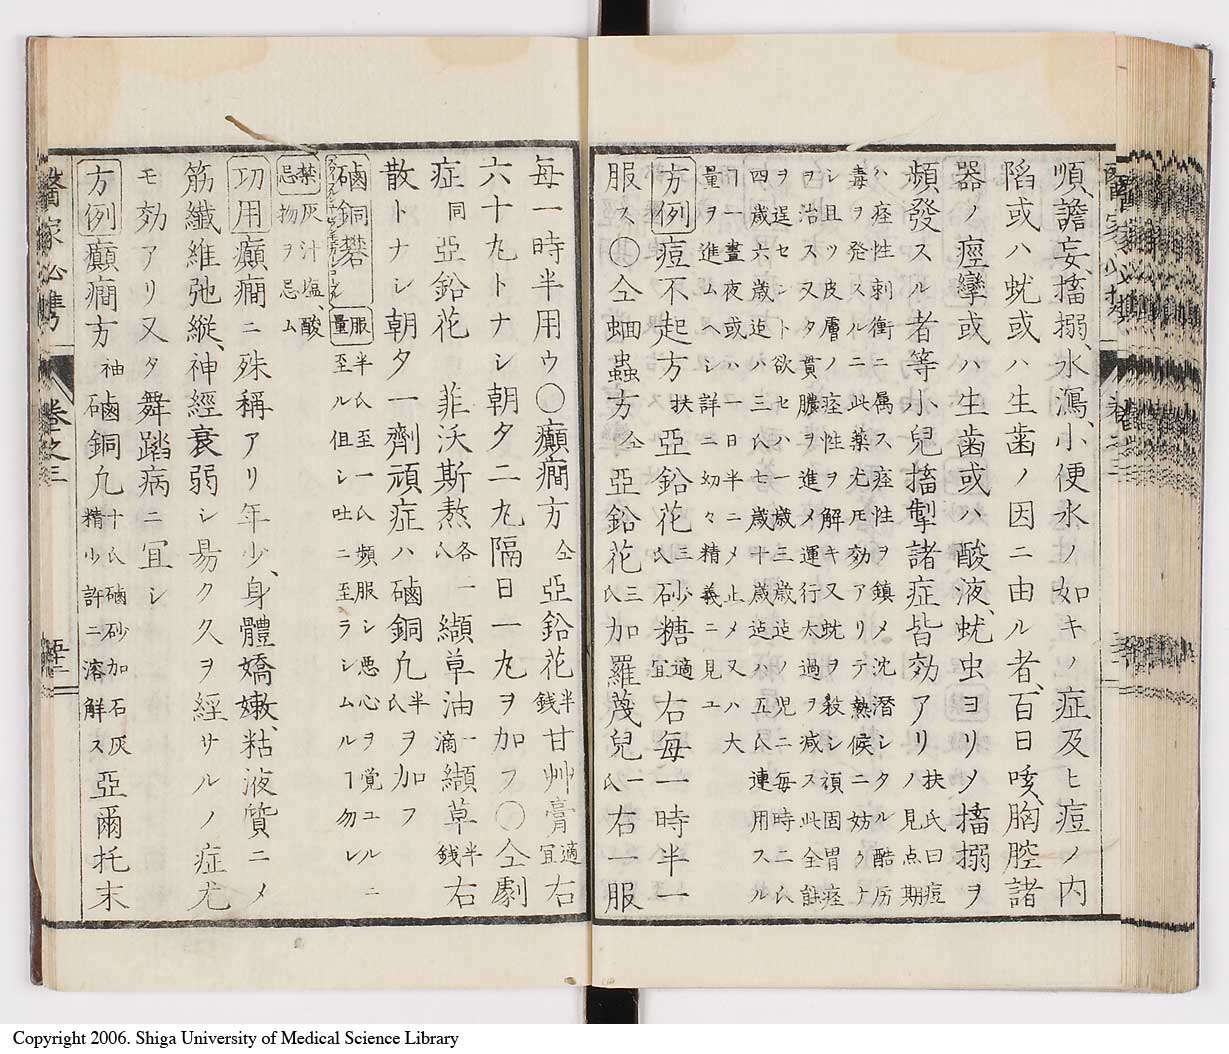 順、譫妄、搐搦、水瀉、小便水ノ如キノ症及ヒ痘ノ内
陷或ハ蚘或ハ生歯ノ因ニ由ル者、百日咳、胸腔諸
器ノ痙攣或ハ生歯或ハ酸液、蚘虫ヨリメ搐搦ヲ
頻發スル者等小兒搐掣諸症皆効アリ
扶氏曰痘ノ見点期
ハ痙性刺衝ニ属ス痙性ヲ鎮メ沈潜シタル酷厉
毒ヲ発スルニ此薬尤モ効アリテ熱候ニ妨ケナ
シ且ツ皮膚ノ痙性ヲ解キ又蚘ヲ殺シ頑固胃痙
ヲ治ス又タ貫膿ヲ進メ運行太過ヲ减ス此全
ヲ逞セント欲セハ一歳三歳迠ノ児ニ毎時二氏
四歳六歳迠ハ三氏七歳十歳迠ハ五氏連用スル
ヿ一晝夜或ハ一日半ニメ止メ又ハ大
量ヲ進ムヘシ詳ニ幼々精義ニ見ユ
方例 痘不起方 扶 亞鉛花 三氏 砂糖 適宜 右每一時半一
服ス〇仝蛔蟲方 仝 亞鉛花 三氏 加羅蔑兒 一氏 右一服
每一時半用ウ〇癲癇方 仝 亞鉛花 半錢 甘艸膏 適宜 右
六十九トナシ朝夕二九隔日一九ヲ加フ〇仝劇
症 同 亞鉛花 菲沃斯熬 各一氏 纈草油 一滴 纈草 半錢 右
散トナシ朝夕一劑頑症ハ磠銅凢 半氏 ヲ加フ
磠銅礬 服量 半氏至一氏頻服シ悪心ヲ覚ユルニ
至ル但シ吐ニ至ラシムルヿ勿レ
禁忌 灰汁塩酸
物ヲ忌ム
功用 癲癇ニ殊稱アリ年少、身體嬌嫩、粘液質ニメ
筋纖維弛縦、神經衰弱シ易ク久ヲ經サルノ症尤
モ効アリ又タ舞蹈病ニ宜シ
方例 癲癇方 袖 磠銅凢 十氏磠砂加石灰
精少許ニ溶解ス 亞爾托末
醫家必携 卷之三